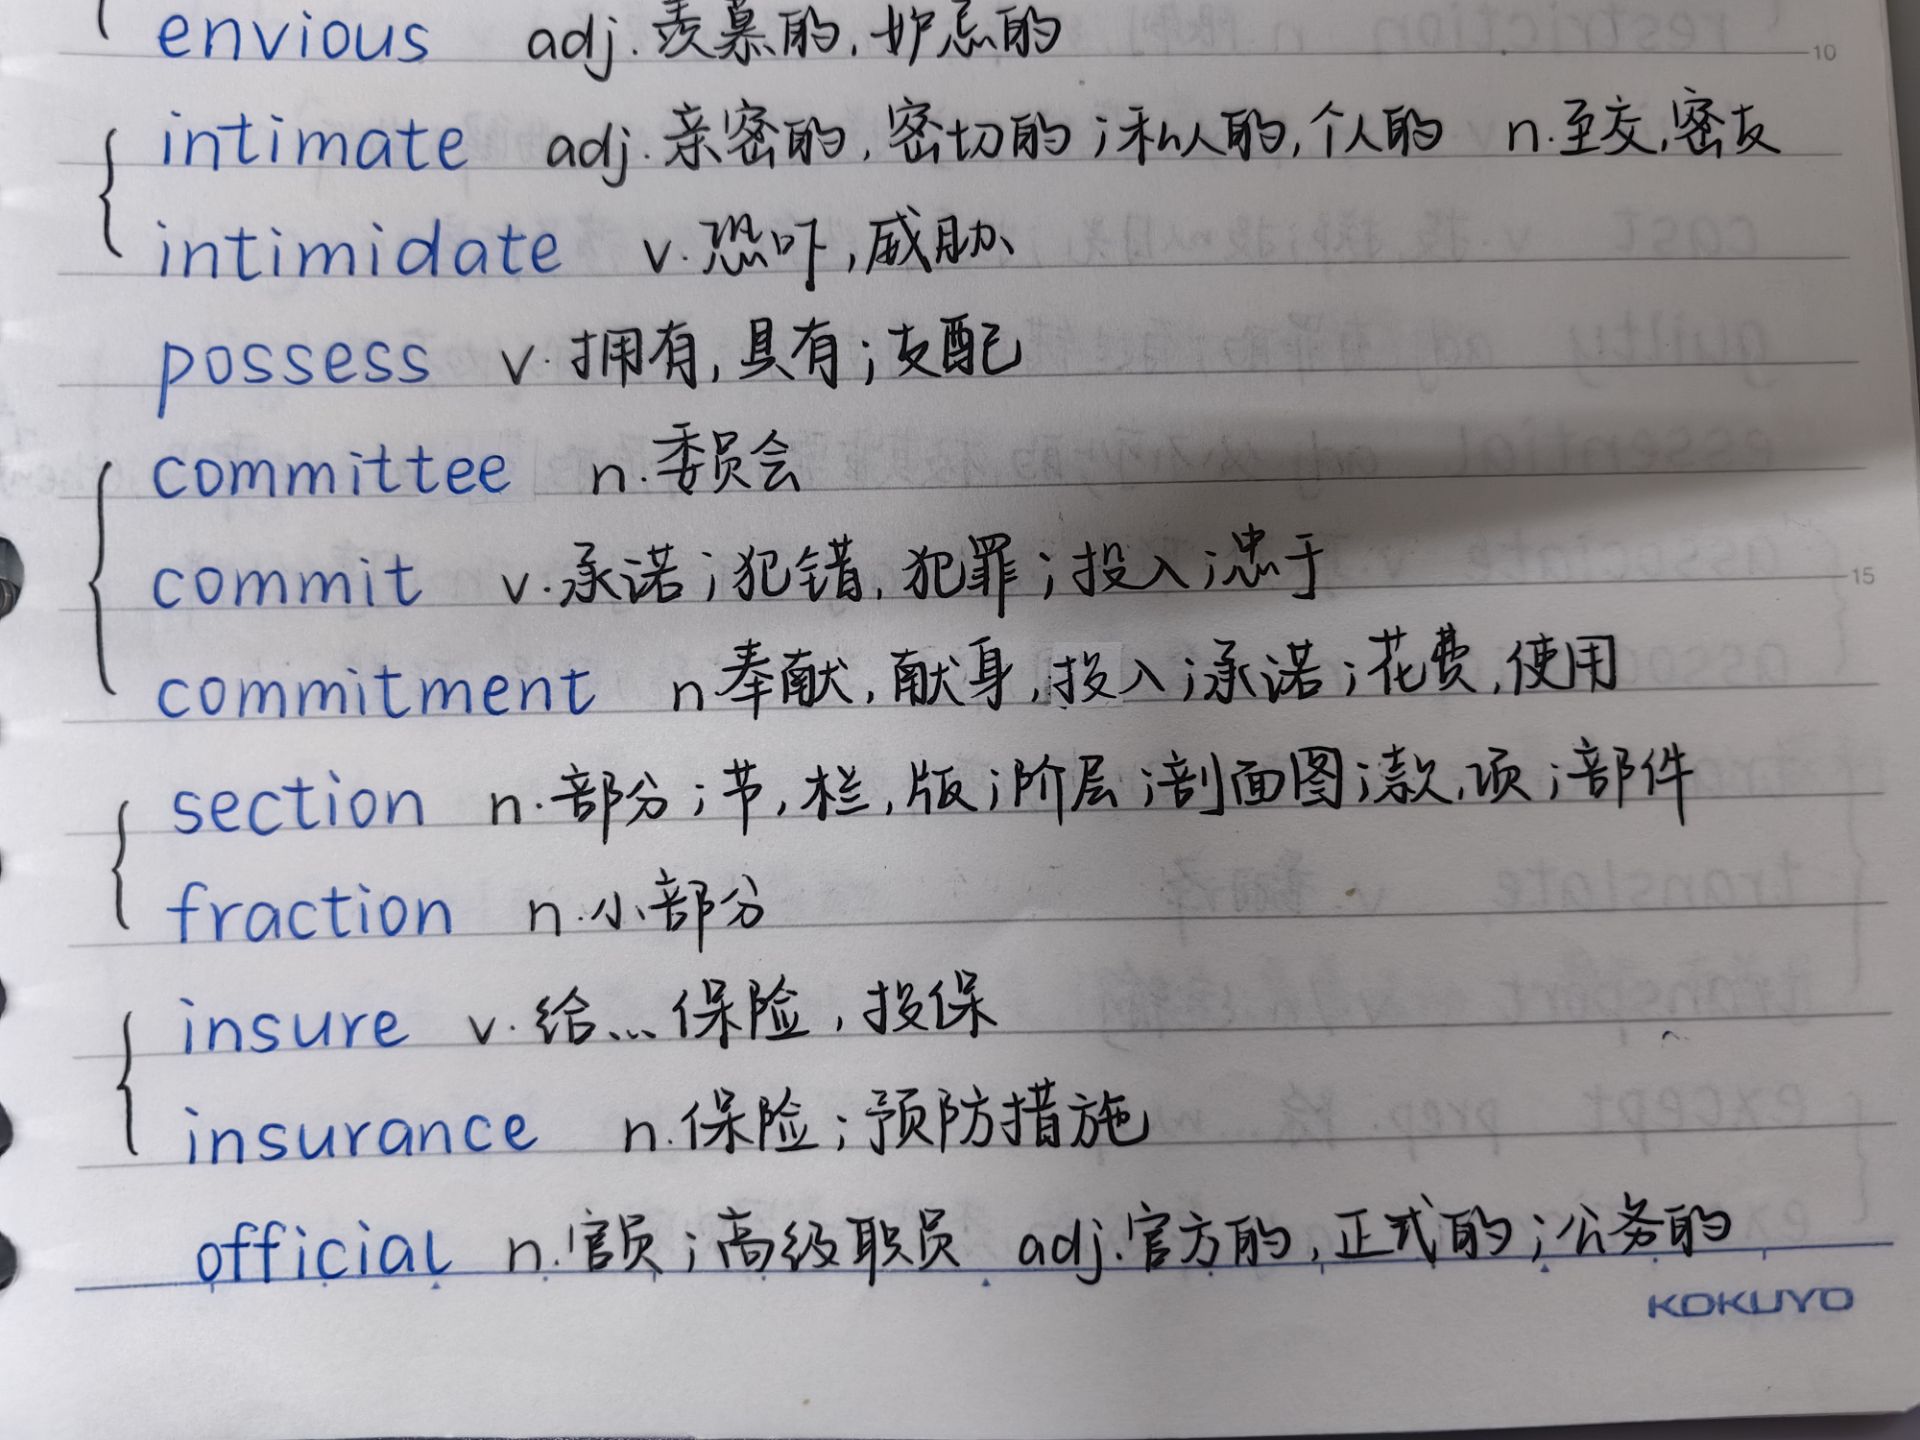 envious adj.羡慕的,妒忌的
10
intimate adj.亲密的,密切的;私人的,个人的 n.至交,密友
intimidate v.恐吓,威胁
possess v.拥有,具有;支配
committee n.委员会
commit v.承诺;犯错,犯罪;投入;忠于
15
commitment n.奉献,献身,投入;承诺;花费,使用
section n.部分;节,栏,版;阶层;剖面图;款,项;部件
fraction n.小部分
insure v.给...保险,投保
insurance n.保险;预防措施
official n.官员;高级职员 adj.官方的,正式的;公务的
KOKUYO